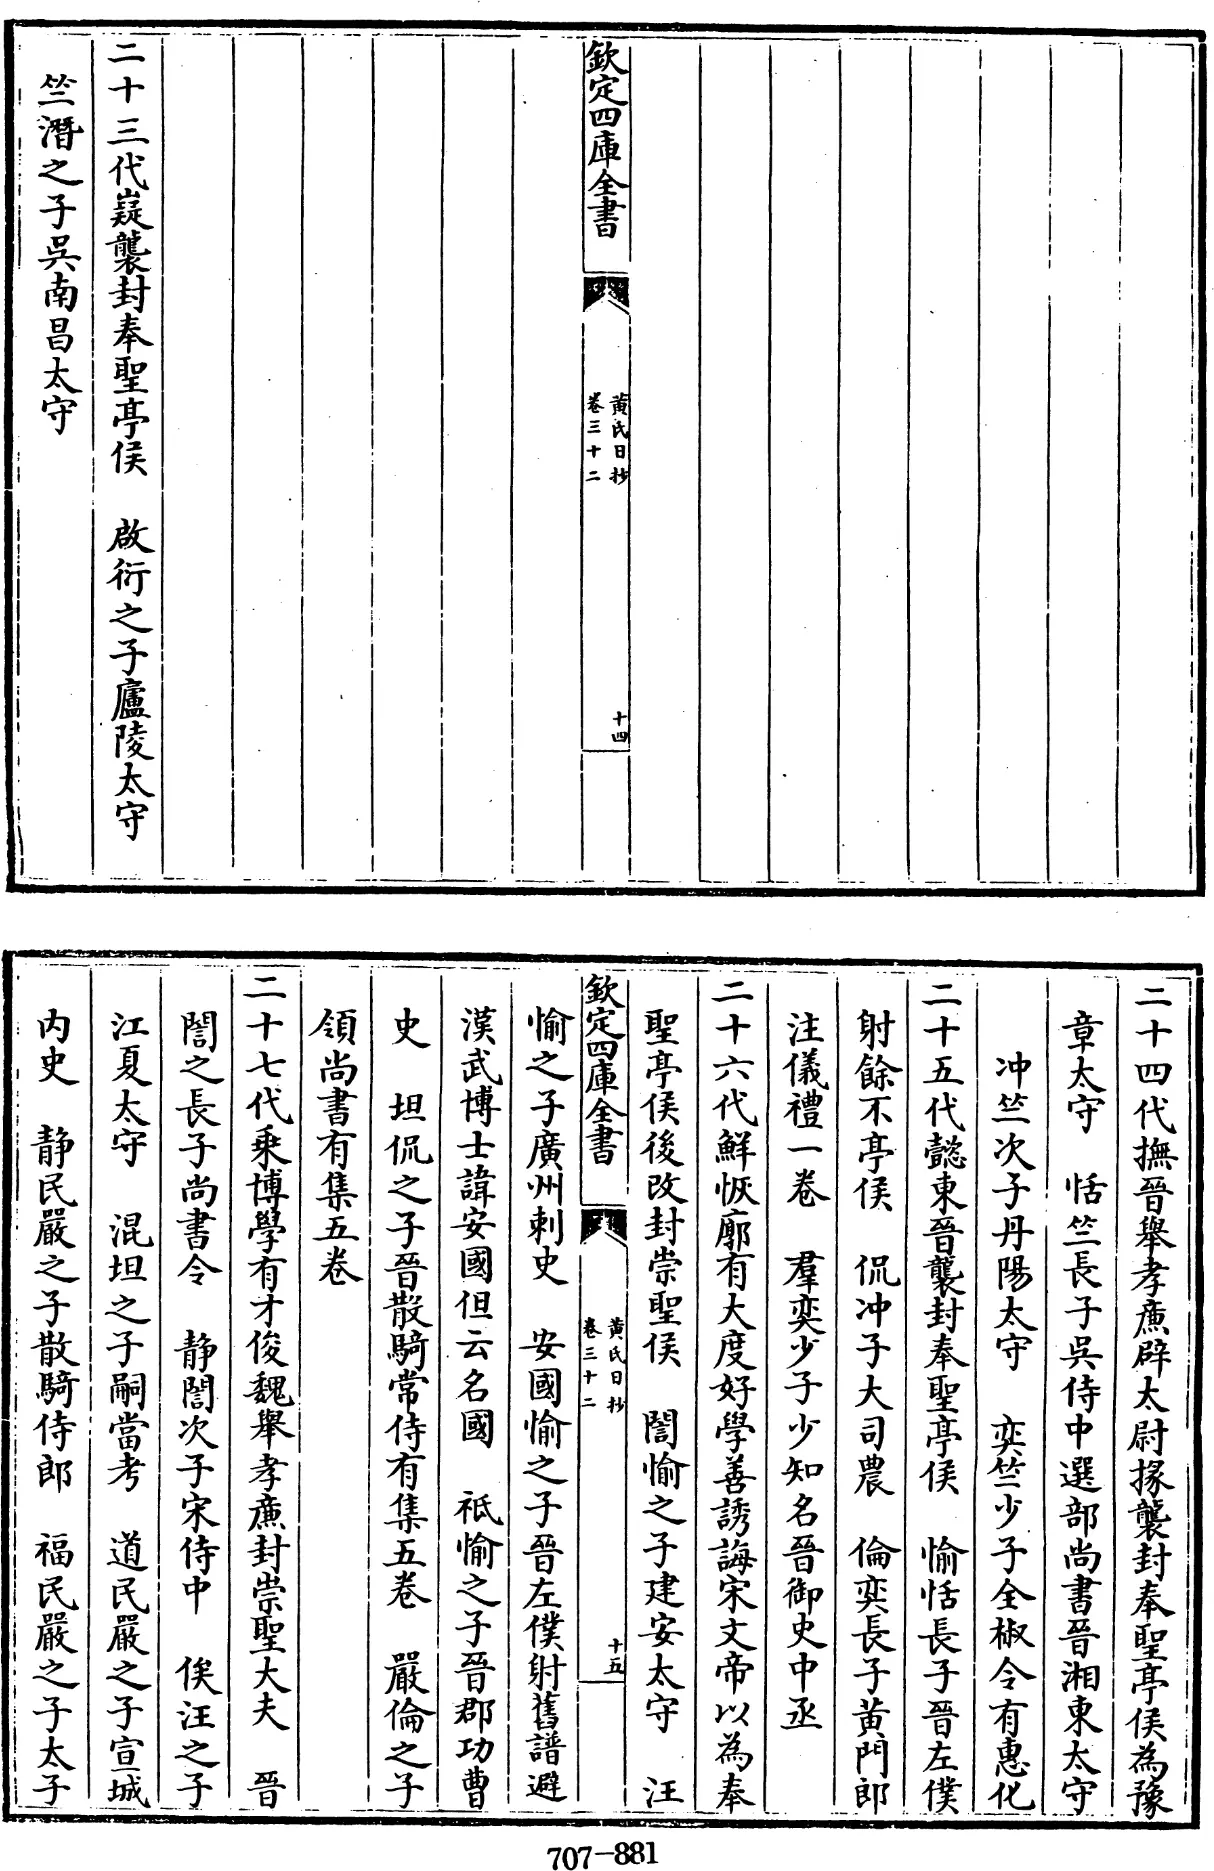 欽定四庫全書
黄氏日抄
卷三十二
十四
二十三代嶷襲封奉聖亭侯　啟衍之子廬陵太守
竺潛之子吳南昌太守
二十四代撫晉舉孝廉辟太尉掾襲封奉聖亭侯為豫
章太守　恬竺長子吳侍中選部尚書晉湘東太守
冲竺次子丹陽太守　奕竺少子全椒令有惠化
二十五代懿東晉襲封奉聖亭侯　愉恬長子晉左僕
射餘不亭侯　侃冲子大司農　倫奕長子黄門郎
注儀禮一卷　羣奕少子少知名晉御史中丞
二十六代鮮恢廓有大度好學善誘誨宋文帝以為奉
聖亭侯後改封崇聖侯　誾愉之子建安太守　汪
欽定四庫全書
黄氏日抄
卷三十二
十五
愉之子廣州刺史　安國愉之子晉左僕射舊譜避
漢武博士諱安國但云名國　祇愉之子晉郡功曹
史　坦侃之子晉散騎常侍有集五卷　嚴倫之子
領尚書有集五卷
二十七代乘博學有才俊魏舉孝廉封崇聖大夫　晉
誾之長子尚書令　静誾次子宋侍中　俟汪之子
江夏太守　混坦之子嗣當考　道民嚴之子宣城
内史　静民嚴之子散騎侍郎　福民嚴之子太子
707-881